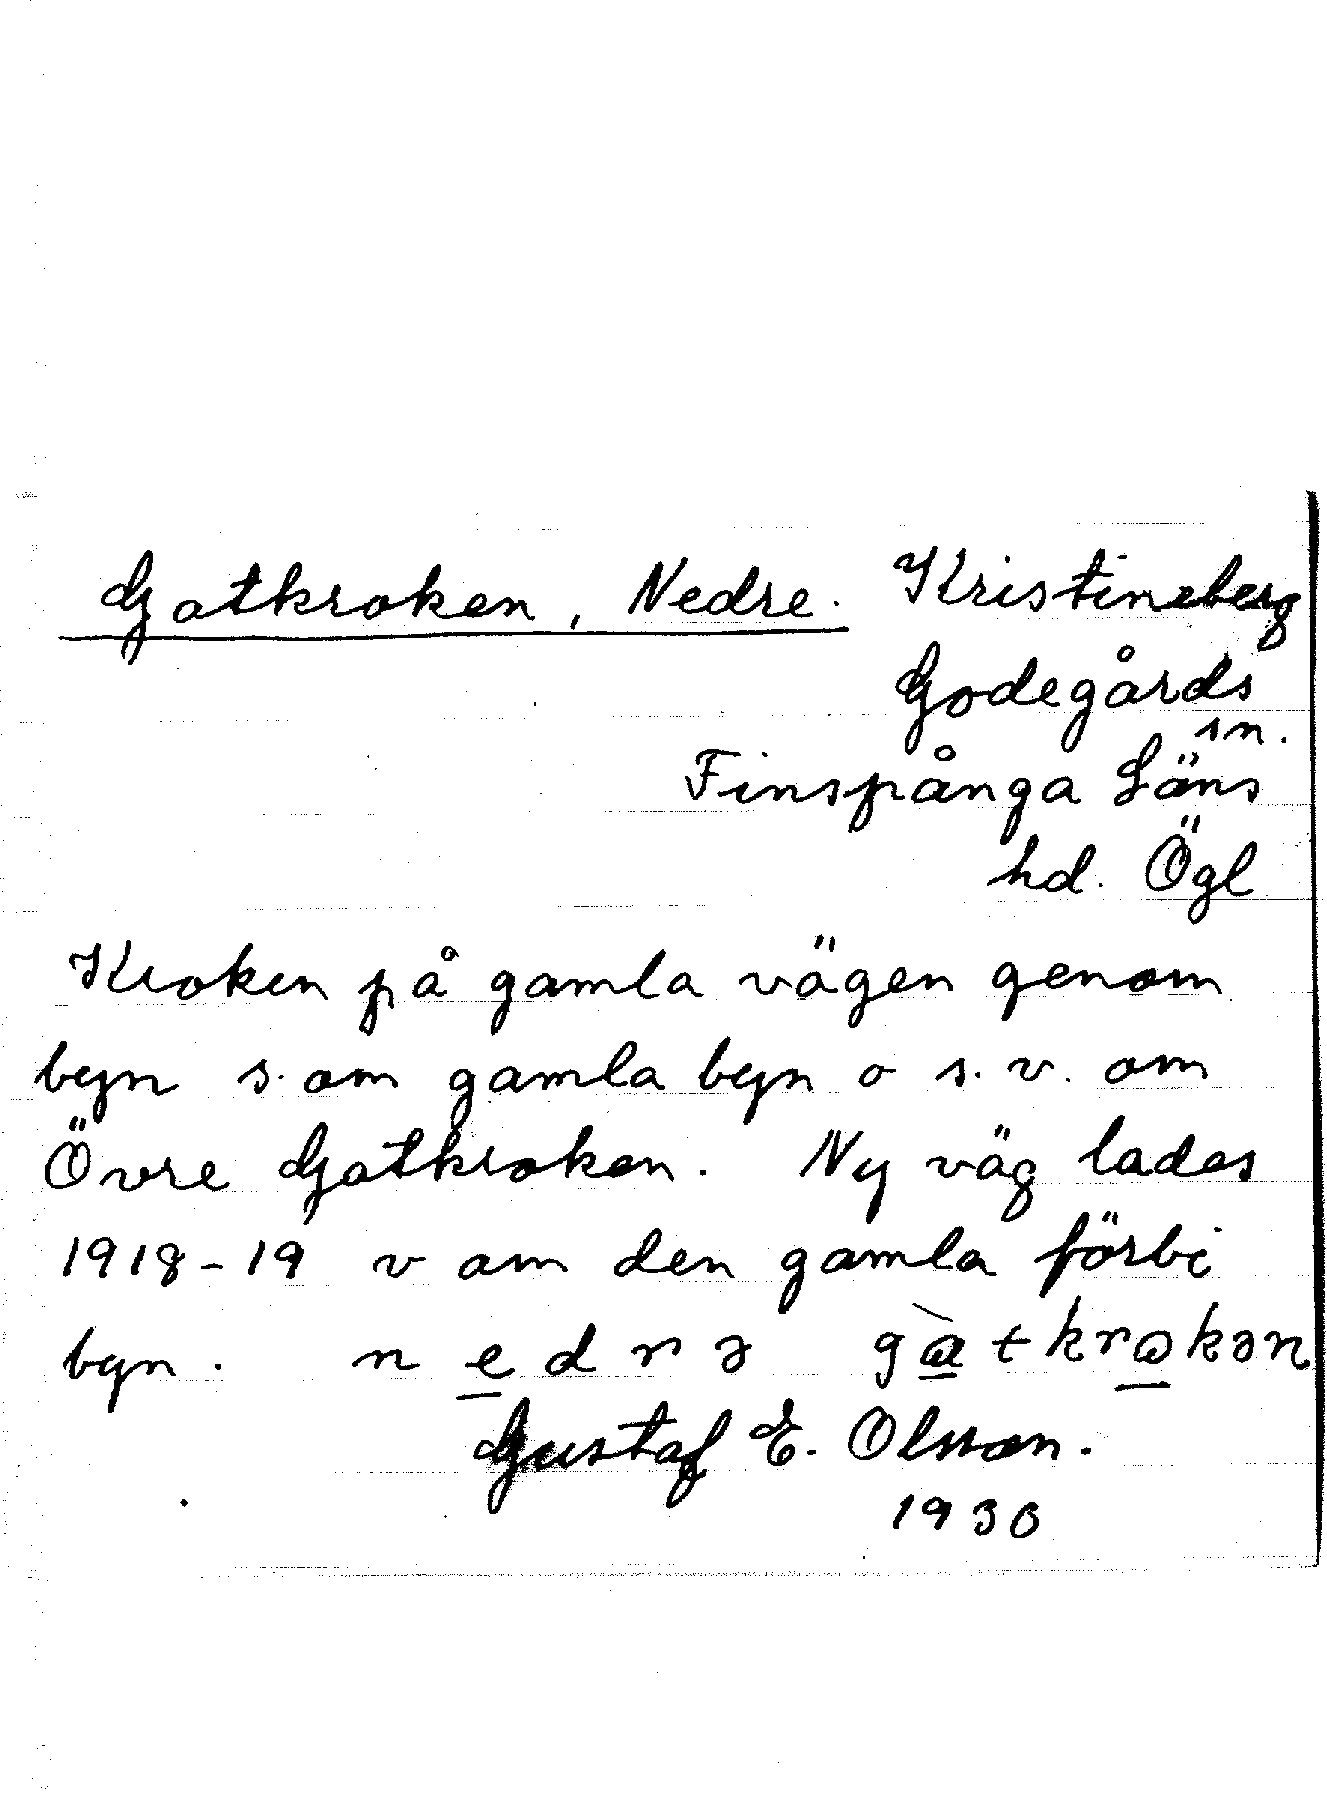 Gatkroken, Nedre. Kristineberg
Godegårds
sn.
Finspånga Läns
hd. Ögl
Kroken på gamla vägen genom
byn s. om gamla byn o s. v. om
Övre Gatkroken. Ny väg lades
1918-19 v om den gamla förbi
byn. nedrə gàtkrokən
Gustaf E. Olsson.
1930